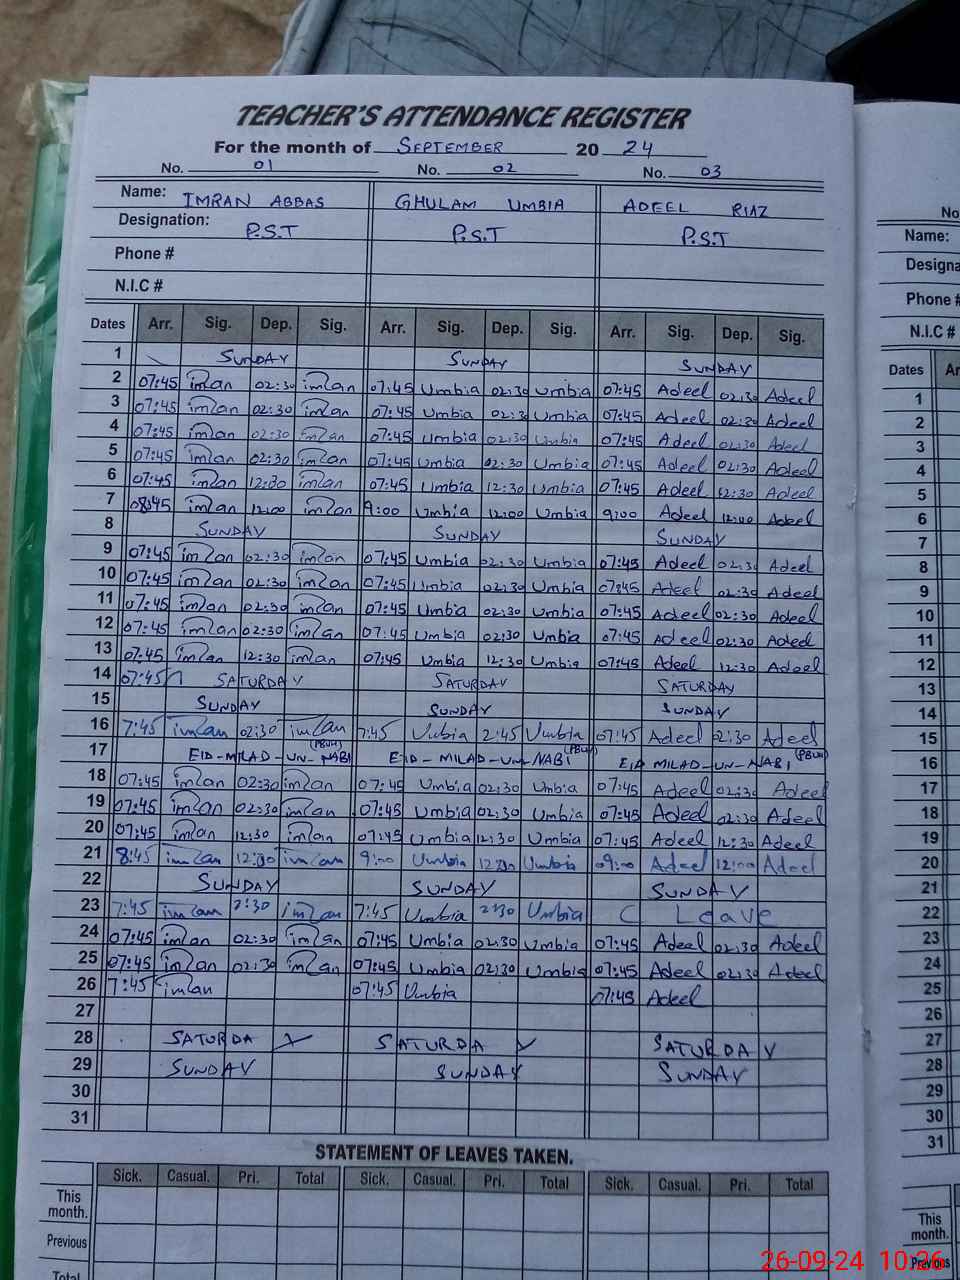 TEACHER'S ATTENDANCE REGISTER
For the month of SEPTEMBER 20 24
No. 01 No. 02 No. 03
Name: IMRAN ABBAS GHULAM UMBIA ADEEL RIAZ
Designation: P.S.T P.S.T P.S.T
Phone #
N.I.C #
Dates Arr. Sig. Dep. Sig. Arr. Sig. Dep. Sig. Arr. Sig. Dep. Sig.
1 SUNDAY SUNDAY SUNDAY
2 07:45 imran 02:30 imran 07:45 Umbia 02:30 Umbia 07:45 Adeel 02:30 Adeel
3 07:45 imran 02:30 imran 07:45 Umbia 02:30 Umbia 07:45 Adeel 02:30 Adeel
4 07:45 imran 02:30 imran 07:45 Umbia 02:30 Umbia 07:45 Adeel 02:30 Adeel
5 07:45 imran 02:30 imran 07:45 Umbia 02:30 Umbia 07:45 Adeel 02:30 Adeel
6 07:45 imran 12:30 imran 07:45 Umbia 12:30 Umbia 07:45 Adeel 12:30 Adeel
7 08:45 imran 12:00 imran 9:00 Umbia 12:00 Umbia 9:00 Adeel 12:00 Adeel
8 SUNDAY SUNDAY SUNDAY
9 07:45 imran 02:30 imran 07:45 Umbia 02:30 Umbia 07:45 Adeel 02:30 Adeel
10 07:45 imran 02:30 imran 07:45 Umbia 02:30 Umbia 07:45 Adeel 02:30 Adeel
11 07:45 imran 02:30 imran 07:45 Umbia 02:30 Umbia 07:45 Adeel 02:30 Adeel
12 07:45 imran 02:30 imran 07:45 Umbia 02:30 Umbia 07:45 Adeel 02:30 Adeel
13 07:45 imran 12:30 imran 07:45 Umbia 12:30 Umbia 07:45 Adeel 12:30 Adeel
14 07:45 SATURDAY SATURDAY SATURDAY
15 SUNDAY SUNDAY SUNDAY
16 7:45 imran 02:30 imran 7:45 Umbia 2:45 Umbia 07:45 Adeel 2:30 Adeel
17 EID-MILAD-UN-NABI (PBUH) EID-MILAD-UN-NABI (PBUH) EID MILAD-UN-NABI (PBUH)
18 07:45 imran 02:30 imran 07:45 Umbia 02:30 Umbia 07:45 Adeel 02:30 Adeel
19 07:45 imran 02:30 imran 07:45 Umbia 02:30 Umbia 07:45 Adeel 02:30 Adeel
20 07:45 imran 12:30 imran 07:45 Umbia 12:30 Umbia 07:45 Adeel 12:30 Adeel
21 8:45 imran 12:00 imran 9:00 Umbia 12:00 Umbia 09:00 Adeel 12:00 Adeel
22 SUNDAY SUNDAY SUNDAY
23 7:45 imran 2:30 imran 7:45 Umbia 2:30 Umbia C Leave
24 07:45 imran 02:30 imran 07:45 Umbia 02:30 Umbia 07:45 Adeel 02:30 Adeel
25 07:45 imran 02:30 imran 07:45 Umbia 02:30 Umbia 07:45 Adeel 02:30 Adeel
26 7:45 imran 07:45 Umbia 07:45 Adeel
27
28 SATURDAY SATURDAY SATURDAY
29 SUNDAY SUNDAY SUNDAY
30
31
STATEMENT OF LEAVES TAKEN.
Sick. Casual. Pri. Total Sick. Casual. Pri. Total Sick. Casual. Pri. Total
This month.
Previous
Total
No
Name:
Designa
Phone #
N.I.C #
Dates Ar
1
2
3
4
5
6
7
8
9
10
11
12
13
14
15
16
17
18
19
20
21
22
23
24
25
26
27
28
29
30
31
This
month.
Previous
26-09-24 10:26